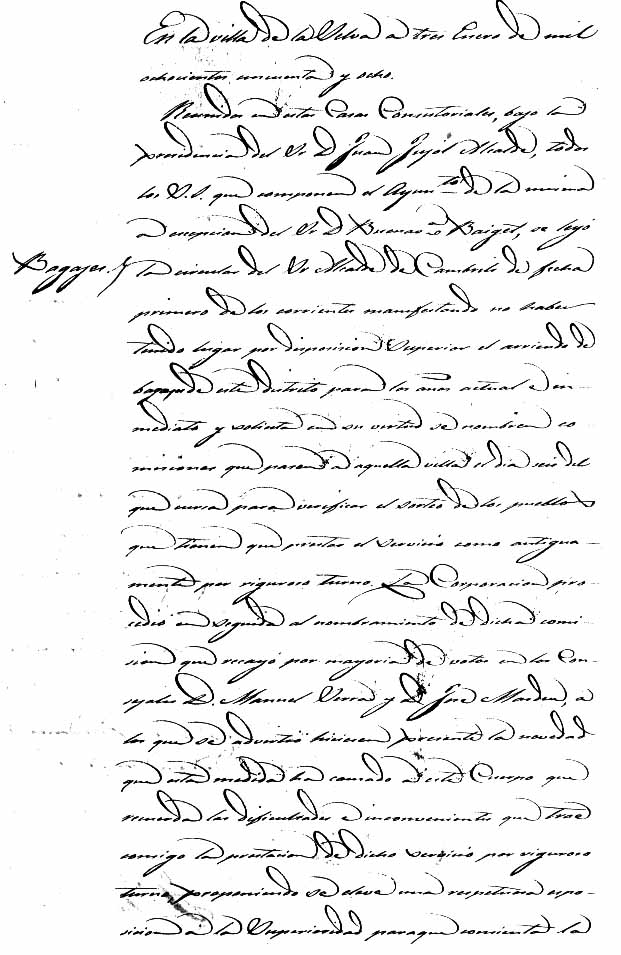 En la villa de la Selva a tres Enero de mil
ochocientos cincuenta y ocho.
Reunidos en estas Casas Consistoriales, bajo la
presidencia del Sr D Juan Pujól Alcalde, todos
los S.S. que componen el Ayunto de la misma
a excepcion del Sr D Buenaa Baiget, se leyó
Bagajes. la circular del Sr Alcalde de Cambrils de fecha
primero de los corrientes manifestando no haber
tenido lugar por disposicion Superior el arriendo de
bagajes de este distrito para los años actual é in-
mediato y solicita en su virtud se nombren co
misiones que pasen a aquella villa el dia seis del
que cursa para verificar el sorteo de los pueblos
que tienen que prestar el servicio como antigua-
mente por riguroso turno. La Corporacion pro-
cedió en seguida al nombramiento de dicha comi-
sion que recayó por mayoria de votos en los Con-
sejales D. Manuel Serra y D José Masdeu, a
los que se advirtió hiciesen presente la novedad
que esta medida ha causado a este Cuerpo que
recuerda las dificultades e inconvenientes que trae
consigo la prestacion de dicho servicio por riguroso
turno, proponiendo se eleve una respetuosa espo-
sicion a la Superioridad para que consienta la